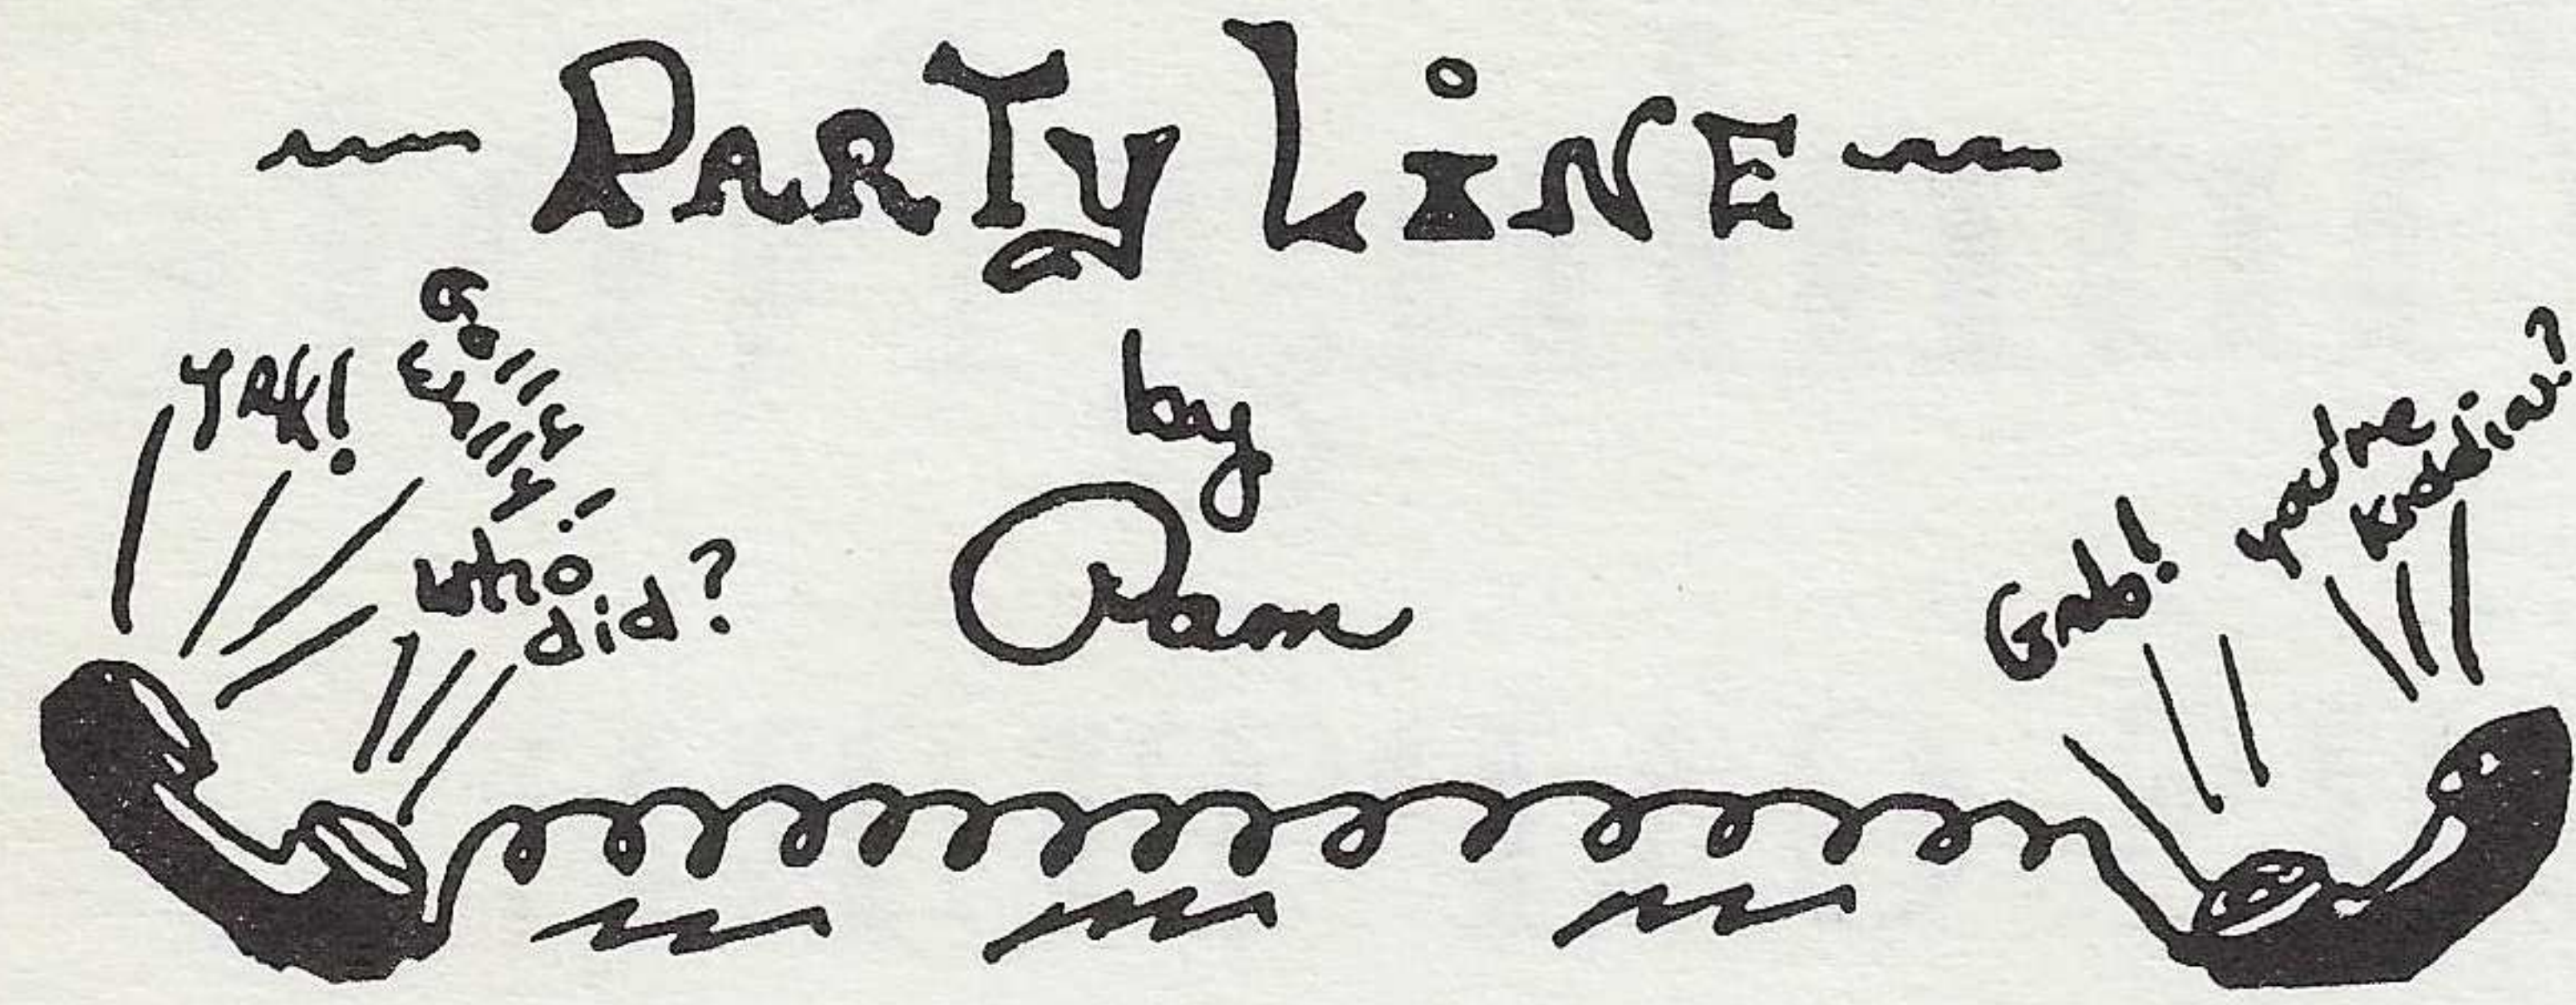 PARTY LiNE
by
Pam
YAK!
Golly
who
did?
Gab!
you're
Kiddin?